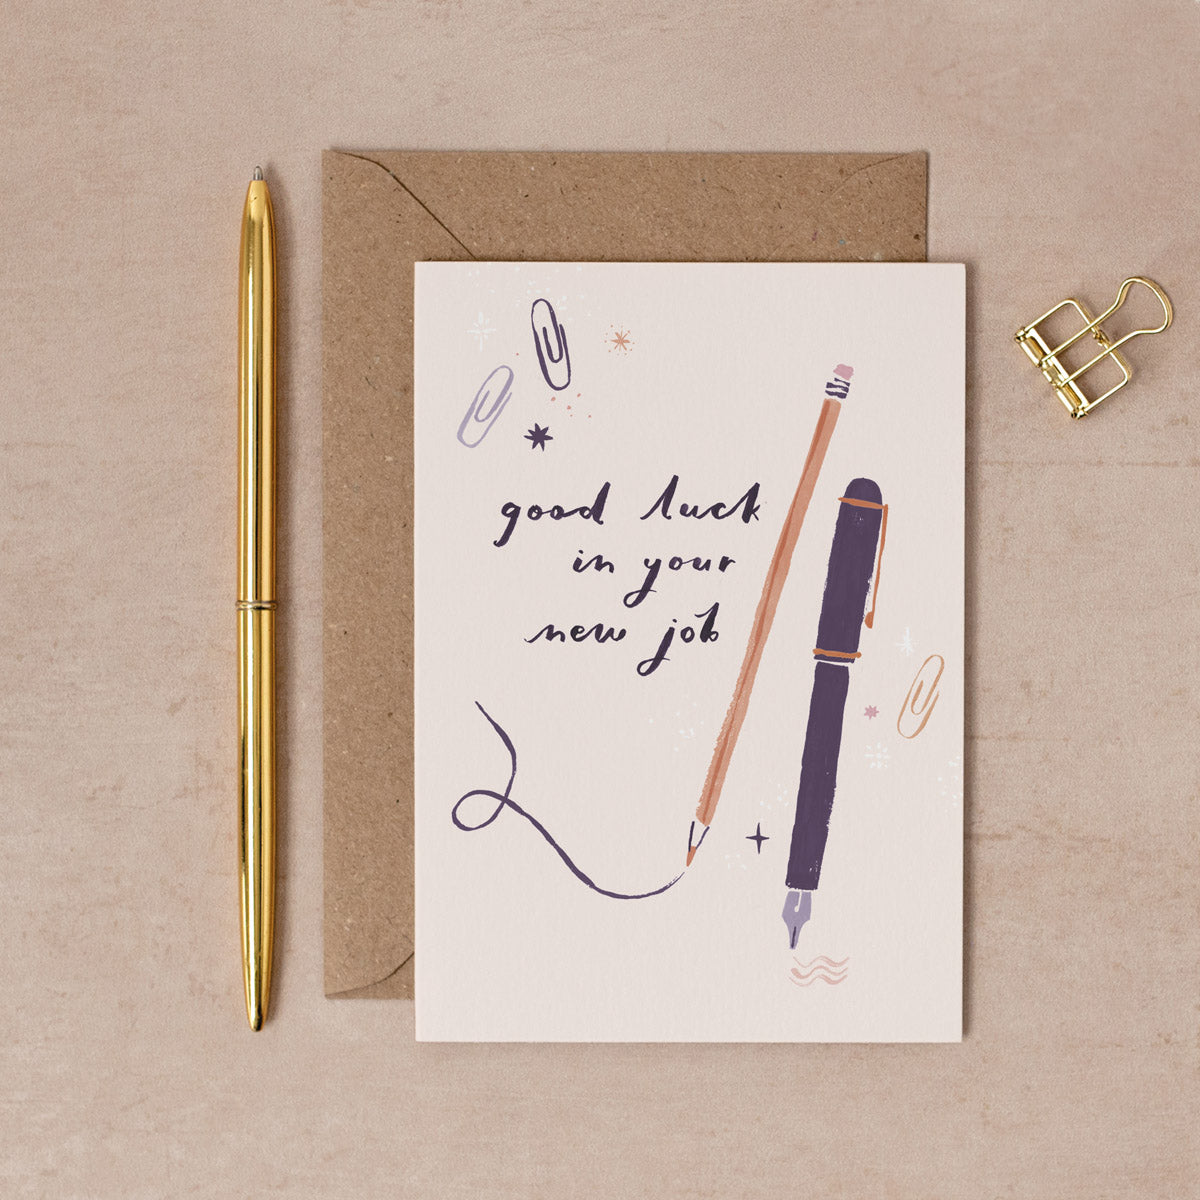 good luck
in your
new job